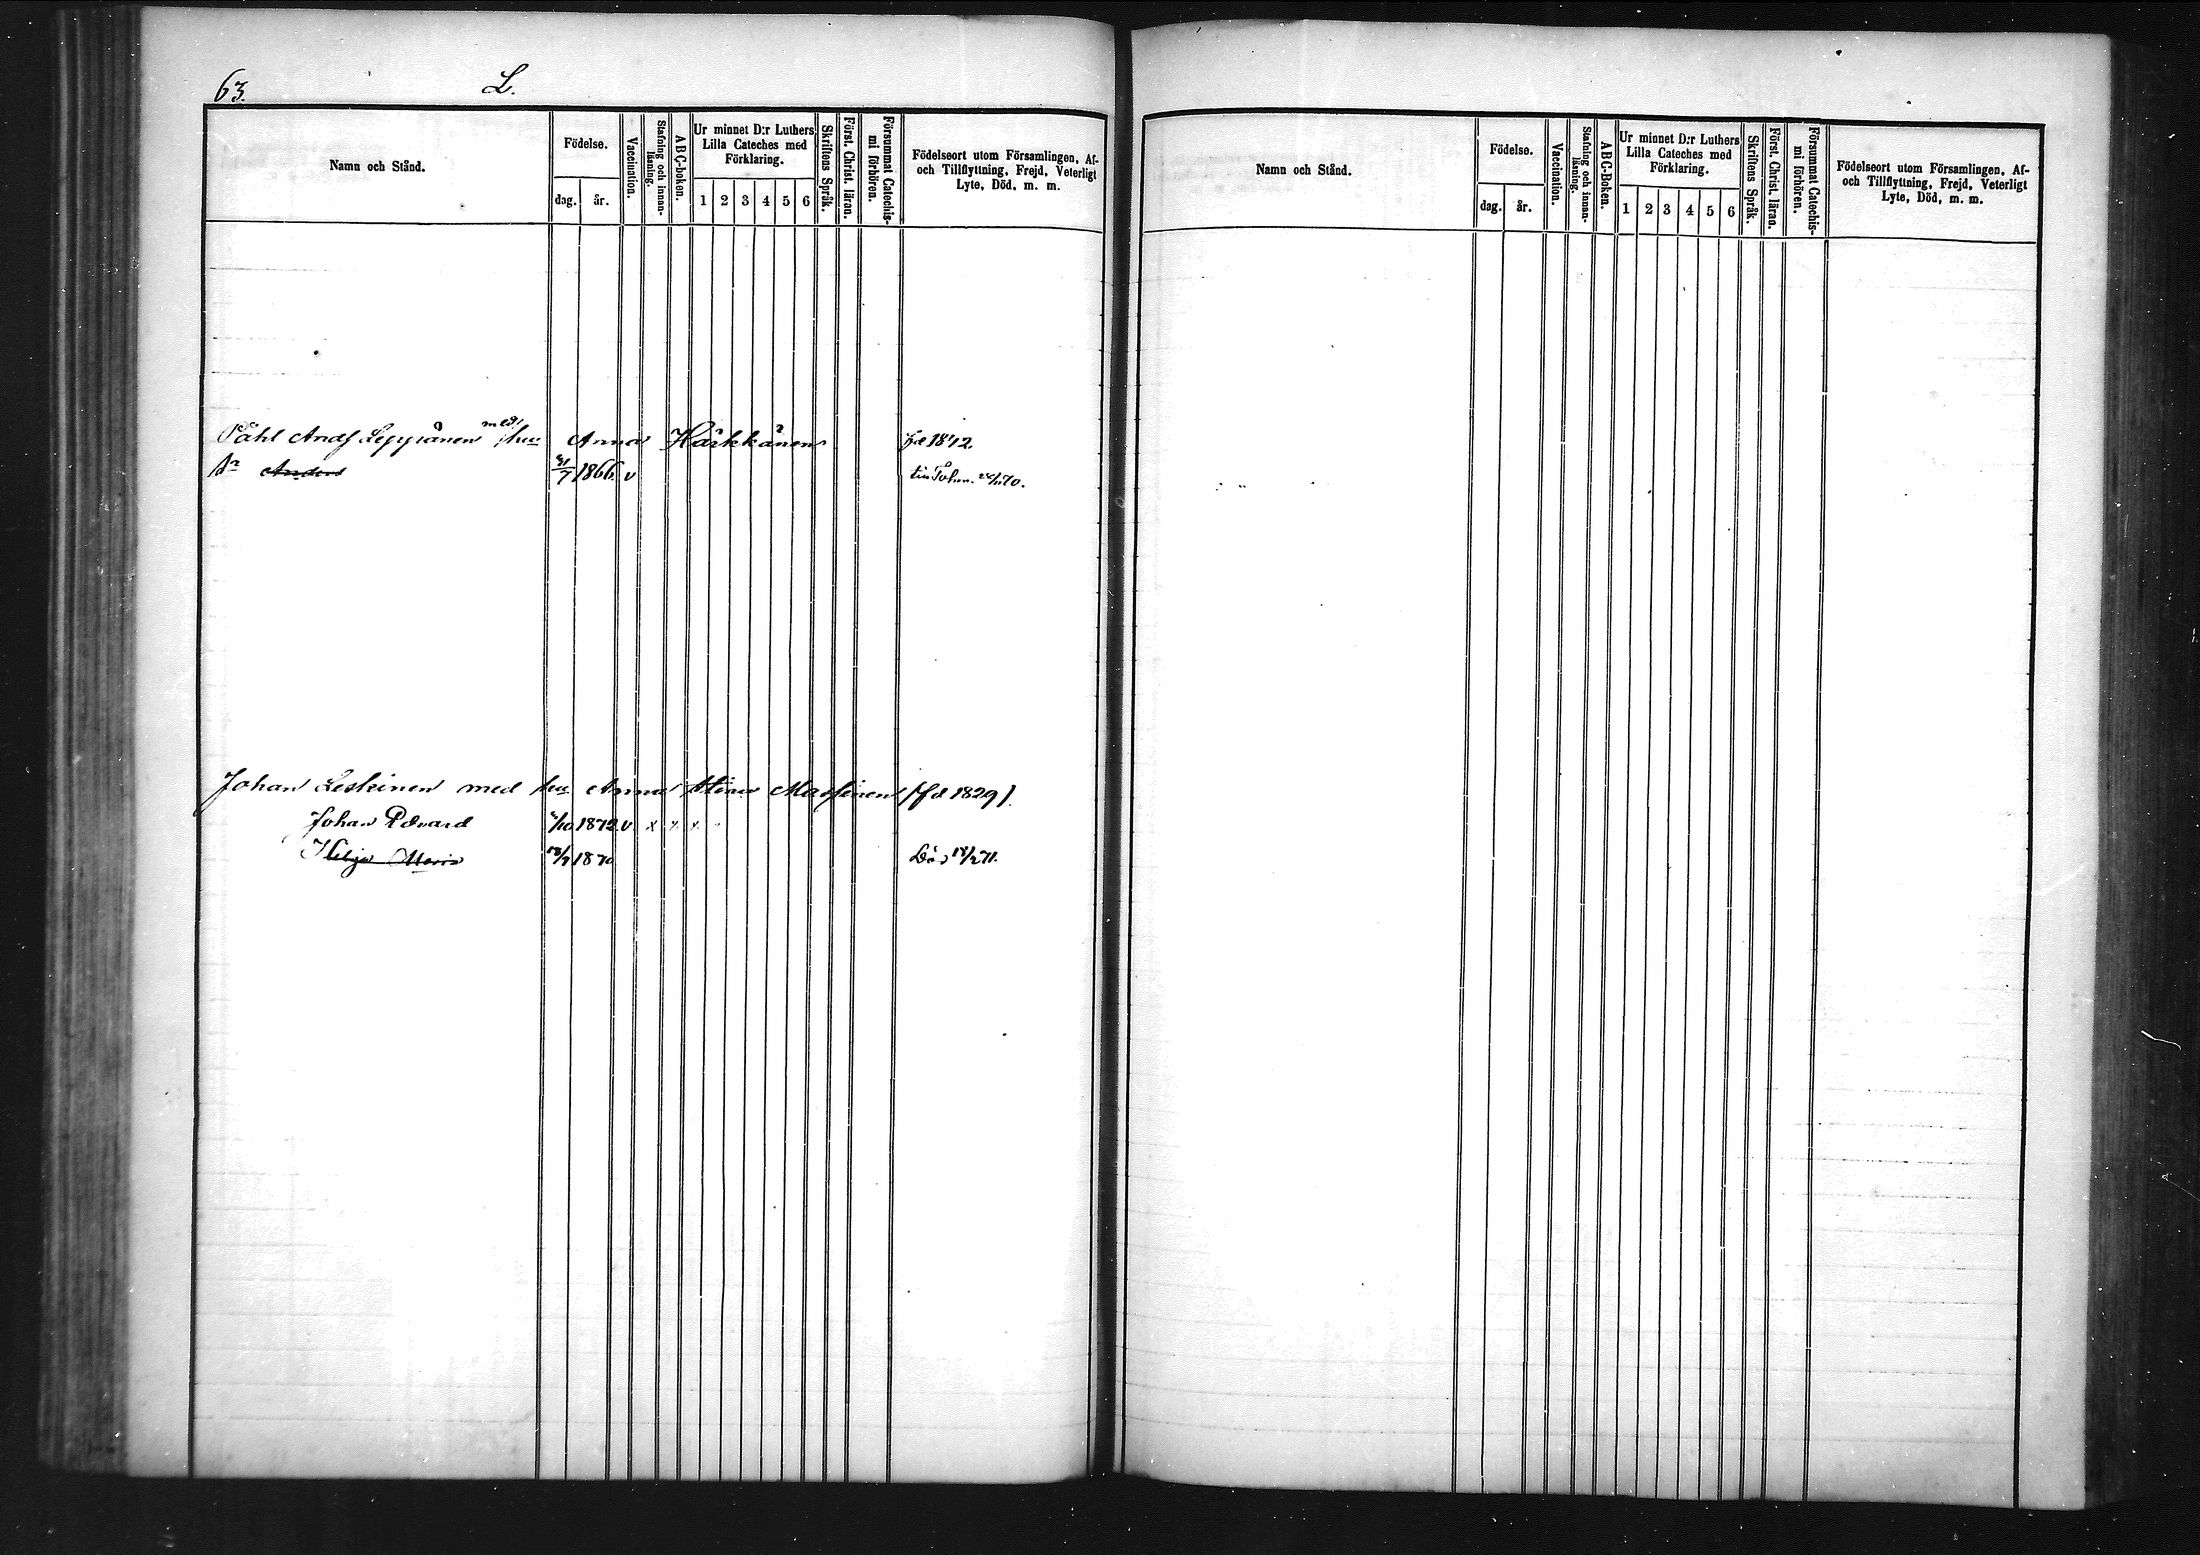 63. L.
Namn och Stånd.
Födelse.
dag. år.
Vaccination.
Stafning och innan-läsning.
A B C-boken.
Ur minnet D:r Luthers
Lilla Cateches med
Förklaring.
1 2 3 4 5 6
Skriftens Språk.
Först. Christ. läran.
Försummat Catechis-
mi förhören.
Födelseort utom Församlingen, Af-
och Tillflyttning, Frejd, Veterligt
Lyte, Död, m. m.
Påhl Andſ Leppänen med hu Anna Härkkänen fd 1842
Sn Anders 31/7 1866 v Tohm. 70.
Johan Leskinen med hu Anna Stina Maſsinen (fd 1829).
Johan Edvard /10 1872 v x x x
Hilja Maria 18/7 1870 Död 18/2 71.
Namn och Stånd.
Födelse.
dag. år.
Vaccination.
Stafning och innan-
läsning.
A B C-Boken.
Ur minnet D:r Luthers
Lilla Cateches med
Förklaring.
1 2 3 4 5 6
Skriftens Språk.
Först. Christ. läran.
Försummat Catechis-
mi förhören.
Födelseort utom Församlingen, Af-
och Tillflyttning, Frejd, Veterligt
Lyte, Död, m. m.